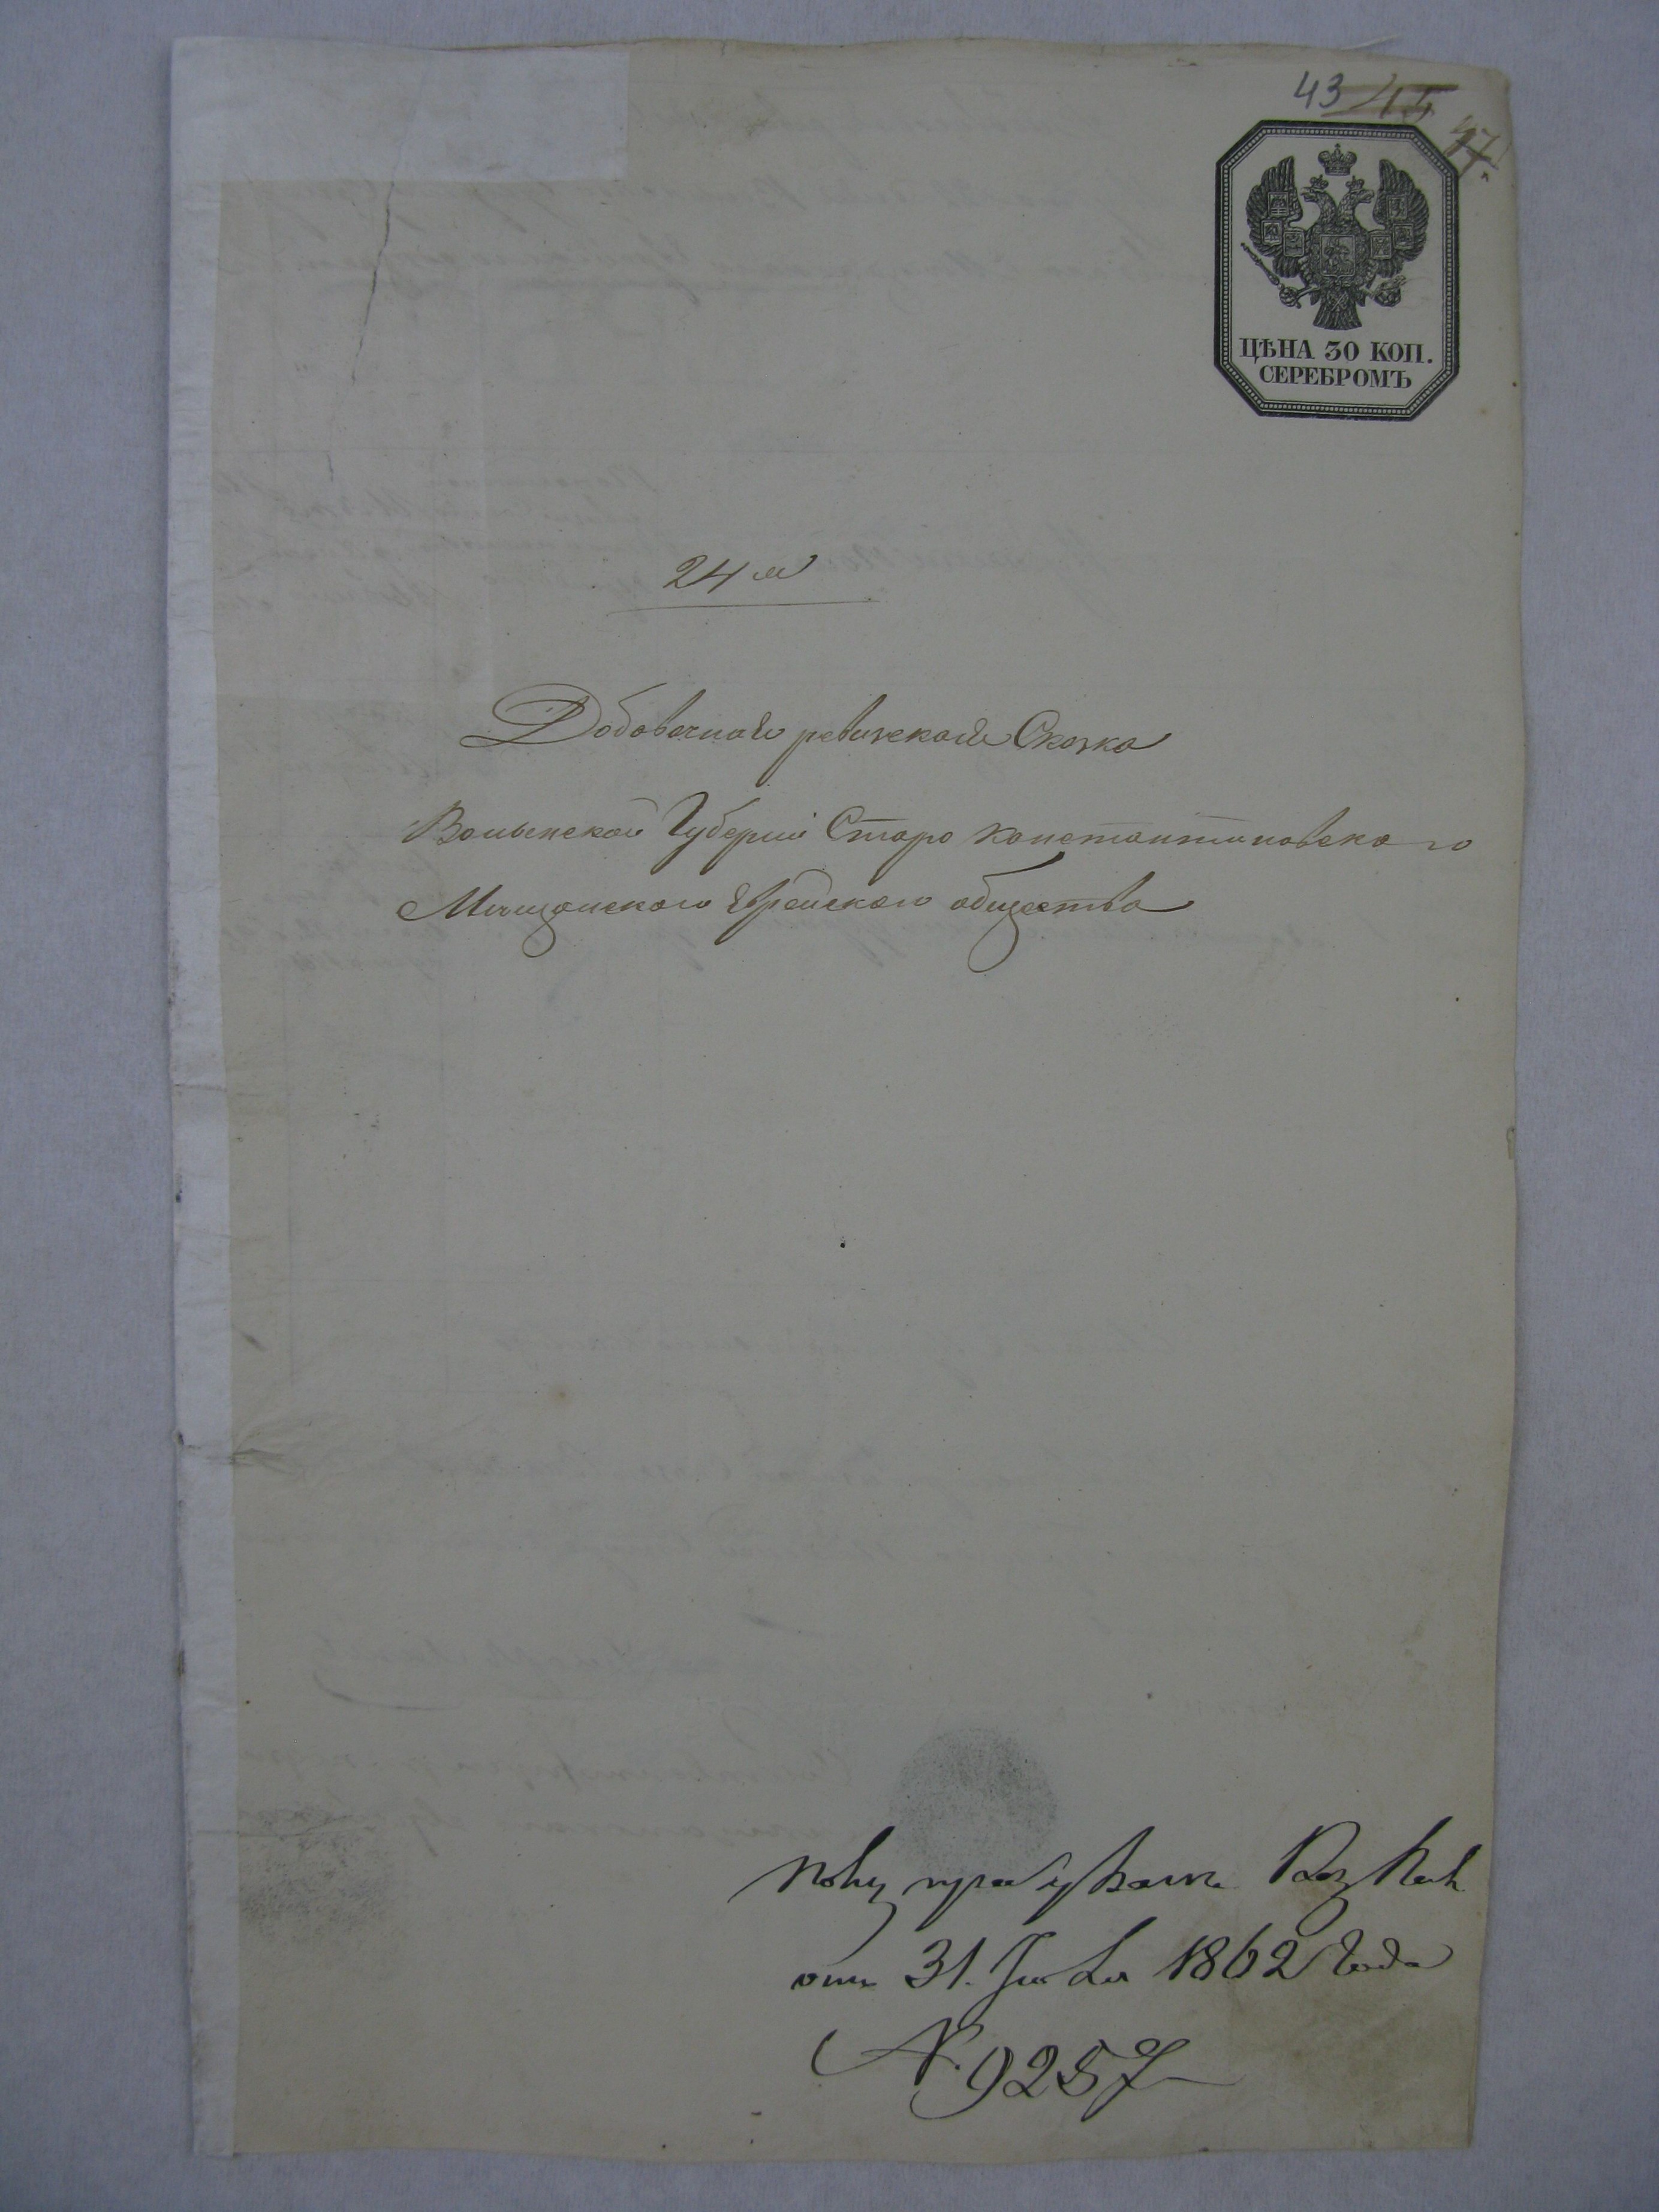 43 45
47
ЦѢНА 30 КОП.
СЕРЕБРОМЪ
24 я
Добавочная ревизская Сказка
Волынской Губерніи Старо константиновскаго
Мещанского Еврейского общества
по указ Каз Пал
отъ 31. Іюля 1862 года
№ 9257